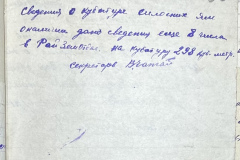 Сведения о кубатуре силосных ям
дано сведения еще 8 числа
в Райземотдел. на кубатуру 298 куб. метр.
секретарь